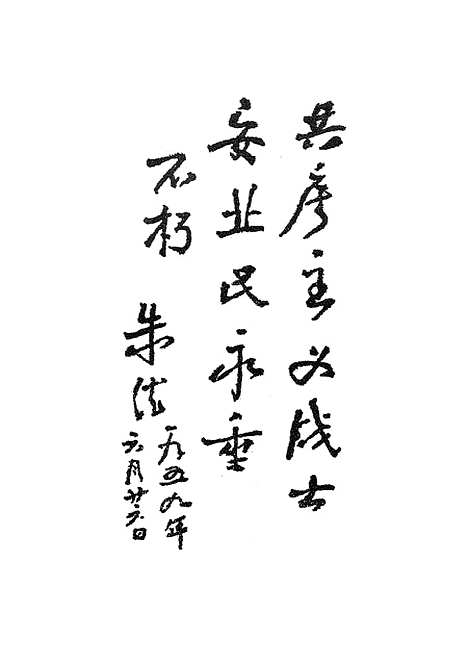 共产主义战士
安业民永垂
不朽
朱德
一九五九年
六月廿六日